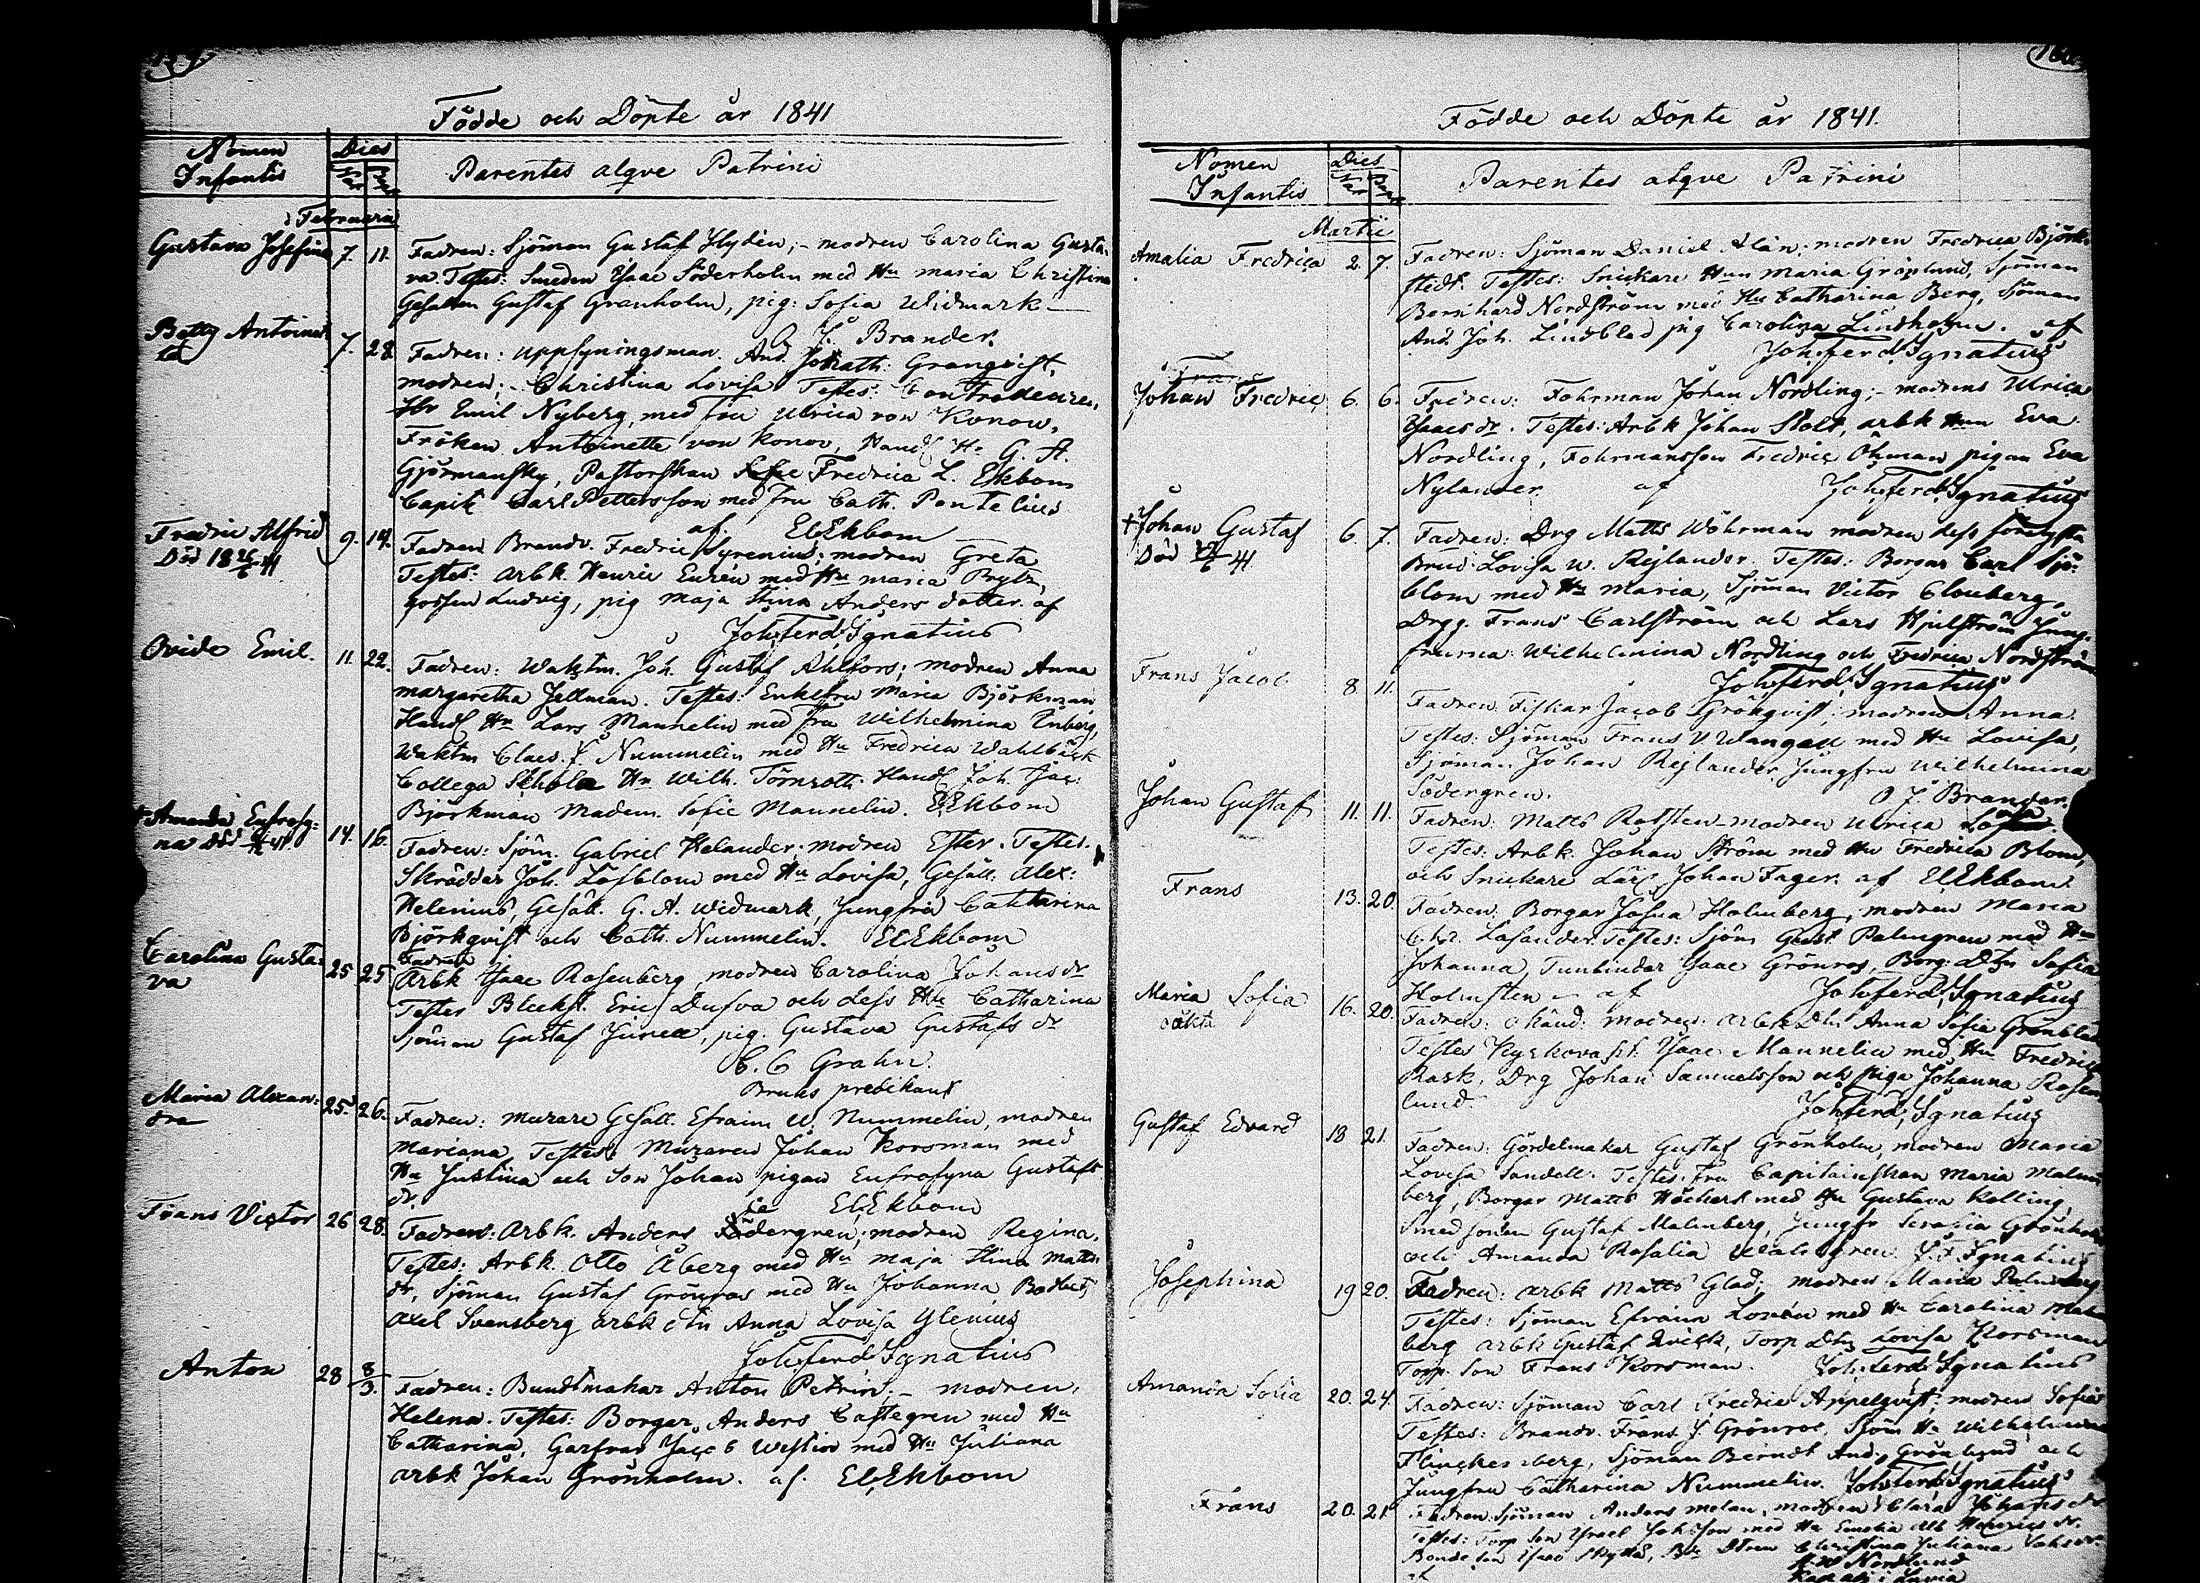 Födde och Döpte år 1841
Nomen Infantis
Dies
Parentes atqve Patrini
Februarii
Gustava Josefina 7. 11. Fadren: Sjöman Gustaf Flydén; modren Carolina Gusta-
va. Testes: Smeden Isaac Söderholm med Hu Maria Christina
Gesällen Gustaf Granholm, pig: Sofia Widmark
O. J. Brander.
Betty Antoinet-
ta 7. 28. Fadren: Uppsyningsman And. Granqvist,
modren: Christina Lovisa Testes:
Hr Emil Nyberg, med fru Ulrica von Konow,
Fröken Antoinette von Konow, Handl Hr G. A.
Pastorskan Fredrica L. Ekbom
Capit Carl Pettersson med fru Cath. Pontelius
af. El Ekbom
Fredric Alfrid 9. 14. Fadren Brandv. Fredric Syrenius; modren Greta
Död 18
Testes: Arbk. Henric Eurén med Hu Maria Prytz,
gossen Ludvig, pig Maja Stina Anders dotter. af
Joh: Ferd: Ignatius
Ovide Emil. 11. 22. Fadren: Waktm. Joh. Gustaf Ahlfors; modren Anna
Margaretha Hellman. Testes: Enkefru Maria Björkman,
Handl Hr Lars Mannelin med fru Wilhelmina Enberg,
Waktm Claes. F. Nummelin med Hu Fredrica Wahlbäck
Collega Schola Hr Wilh. Törnroth. Handl Joh. Isac:
Björkman Madem. Sofie Mannelin. El Ekbom
+ Amanda Eufrosy-
na Död 14. 16. Fadren: Sjöm. Gabriel Helander; modren Ester. Testes.
Skräddar Joh. Löfblom med Hu Lovisa, Gesäll. Alex:
Helenius, Gesäll. G. A. Widmark, Jungfru Catharina
Björkqvist och Cath. Nummelin. El Ekbom
Carolina Gusta-
va 25 25 Fadren
Arbk Isaac Rosenberg, modren Carolina Johansdr
Testes Bleckst. Eric Dufva och dess Hu Catharina
Sjöman Gustaf pig. Gustava Gustafs dr
C. G Grahn.
Bruks predikant
Maria Alexan-
dra 25. 26. Fadren: Murare Gesäll. Efraim W. Nummelin, modren
Mariana Testes: Muraren Johan Korsman med
Hu Justina och Son Johan pigan Eufrosyna Gustafs
dr. El Ekbom
Frans Victor 26 28. Fadren: Arbk. Anders Södergren; modren Regina.
Testes: Arbk. Otto Åberg med Hu Maja Stina Matts
dr, Sjöman Gustaf Grönroos med Hu Johanna
Axel Svansberg Arbk dtr Anna Lovisa Ylenius
Joh: Ferd Ignatius
Anton 28 8/3. Fadren: Buntmakar Anton Petrin; modren,
Helena. Testes: Borgar. Anders Castegren med Hu
Catharina, Garfvar Isac G Westlin med Hu Juliana
Arbk Johan Grönholm. af. El Ekbom
Födde och Döpte år 1841.
Nomen Infantis
Dies
Parentes atqve Patrini
Martii
Amalia Fredrica 2. 7. Fadren: Sjöman Daniel Alén; modren Fredrica Björk-
stedt. Testes: Snickare Hun Maria Grönlund, Sjöman
Bernhard Nordström med Hu Catharina Berg, Sjöman
And. Joh. Lindblad pig Carolina Lindholm. af
Joh: ferd Ignatius
Johan Fredric 6. 6. Fadren: Fohrman Johan Nordling; modrens Ulrica
Isaacs dr. Testes: Arbk Johan Stolt, arbk Hun Eva
Nordling, Fohrmansson Fredric Öhman pigan Eva
Nylander. af Joh: ferd Ignatius
+ Johan Gustaf 6. 7. Fadren: Drg Matts Wöhrman modren dess
Död
Brud: Lovisa W. Rejlander. Testes: Borgar Carl Sjö-
blom med Hu Maria, Sjöman Victor Clouberg,
Drgg. Frans Carlström och Lars Hjulström Jung-
fruma: Wilhelmina Nordling och Fredrica Nordström
Joh: ferd Ignatius
Frans Jacob 8. 11. Fadren. Fiskar Jacob Grönqvist; modren Anna.
Testes: Sjöman Frans W Wangell med Hu Lovisa,
Sjöman Johan Rejlander, Jungfru Wilhelmina
Södergren. O J. Brander.
Johan Gustaf 11. 11. Fadren: Matts Rotsten modren Ulrica
Testes: Arbk. Johan Ström med Hu Fredrica Blom,
och Snickare Johan Fager. af El Ekbom.
Frans 13. 20. Fadren: Borgar Josua Holmberg, modren Maria
Chr. Lasander. Testes: Sjöm Gust. Palmgren med Hu
Johanna, Tunbindar Isaac Grönros, Borg: Dtr Sofia
Holmsten af Joh: ferd: Ignatius
Maria Sofia 16. 20. Fadren: okänd: modren: Arbk Dtr Anna Sofia Grönblad
oäkta
Testes Isaac Mannelin med Hu Fredrica
Rask, Drg Johan Samuelsson och Piga Johanna Rosen-
lund. Joh: ferd: Ignatius
Gustaf Edvard 18 21. Fadren: Gördelmakar Gustaf Grönholm, modren Maria
Lovisa Sandell. Testes: Fru Capitainskan Maria Malm-
berg, Borgar Matts Höckert med Hu Gustava Kolling
Smed Gustaf Malmberg, Jungfr Serafia Grönholm
och Amanda Rosalia J: F: Ignatius
Josephina 19 20. Fadren: Arbk Matts Glad; modren Maria
Testes: Sjöman Efraim Lorén med Hu Carolina Malm
berg Arbk Gustaf Qvick, Torp Dtr Lovisa Korsman
Torp. Son Frans Korsman. Joh: ferd Ignatius
Amanda Sofia 20. 24. Fadren: Sjöman Carl Fredric Appelqvist; modren Sofia
Testes: Brandv. Frans J Grönros, Sjöm Hu Wilhelmina
Flinckenberg, Sjöman Berndt And: Grönlund och
Jungfru Catharina Nummelin. Joh: ferd: Ignatius
Frans 20. 21. Fadren: Sjöman Anders Melan, modren Clara Johans dr
Testes: Torp Son Israel Johsson med Hu
Bonde Son Isaac Christina Juliana
Nordlund